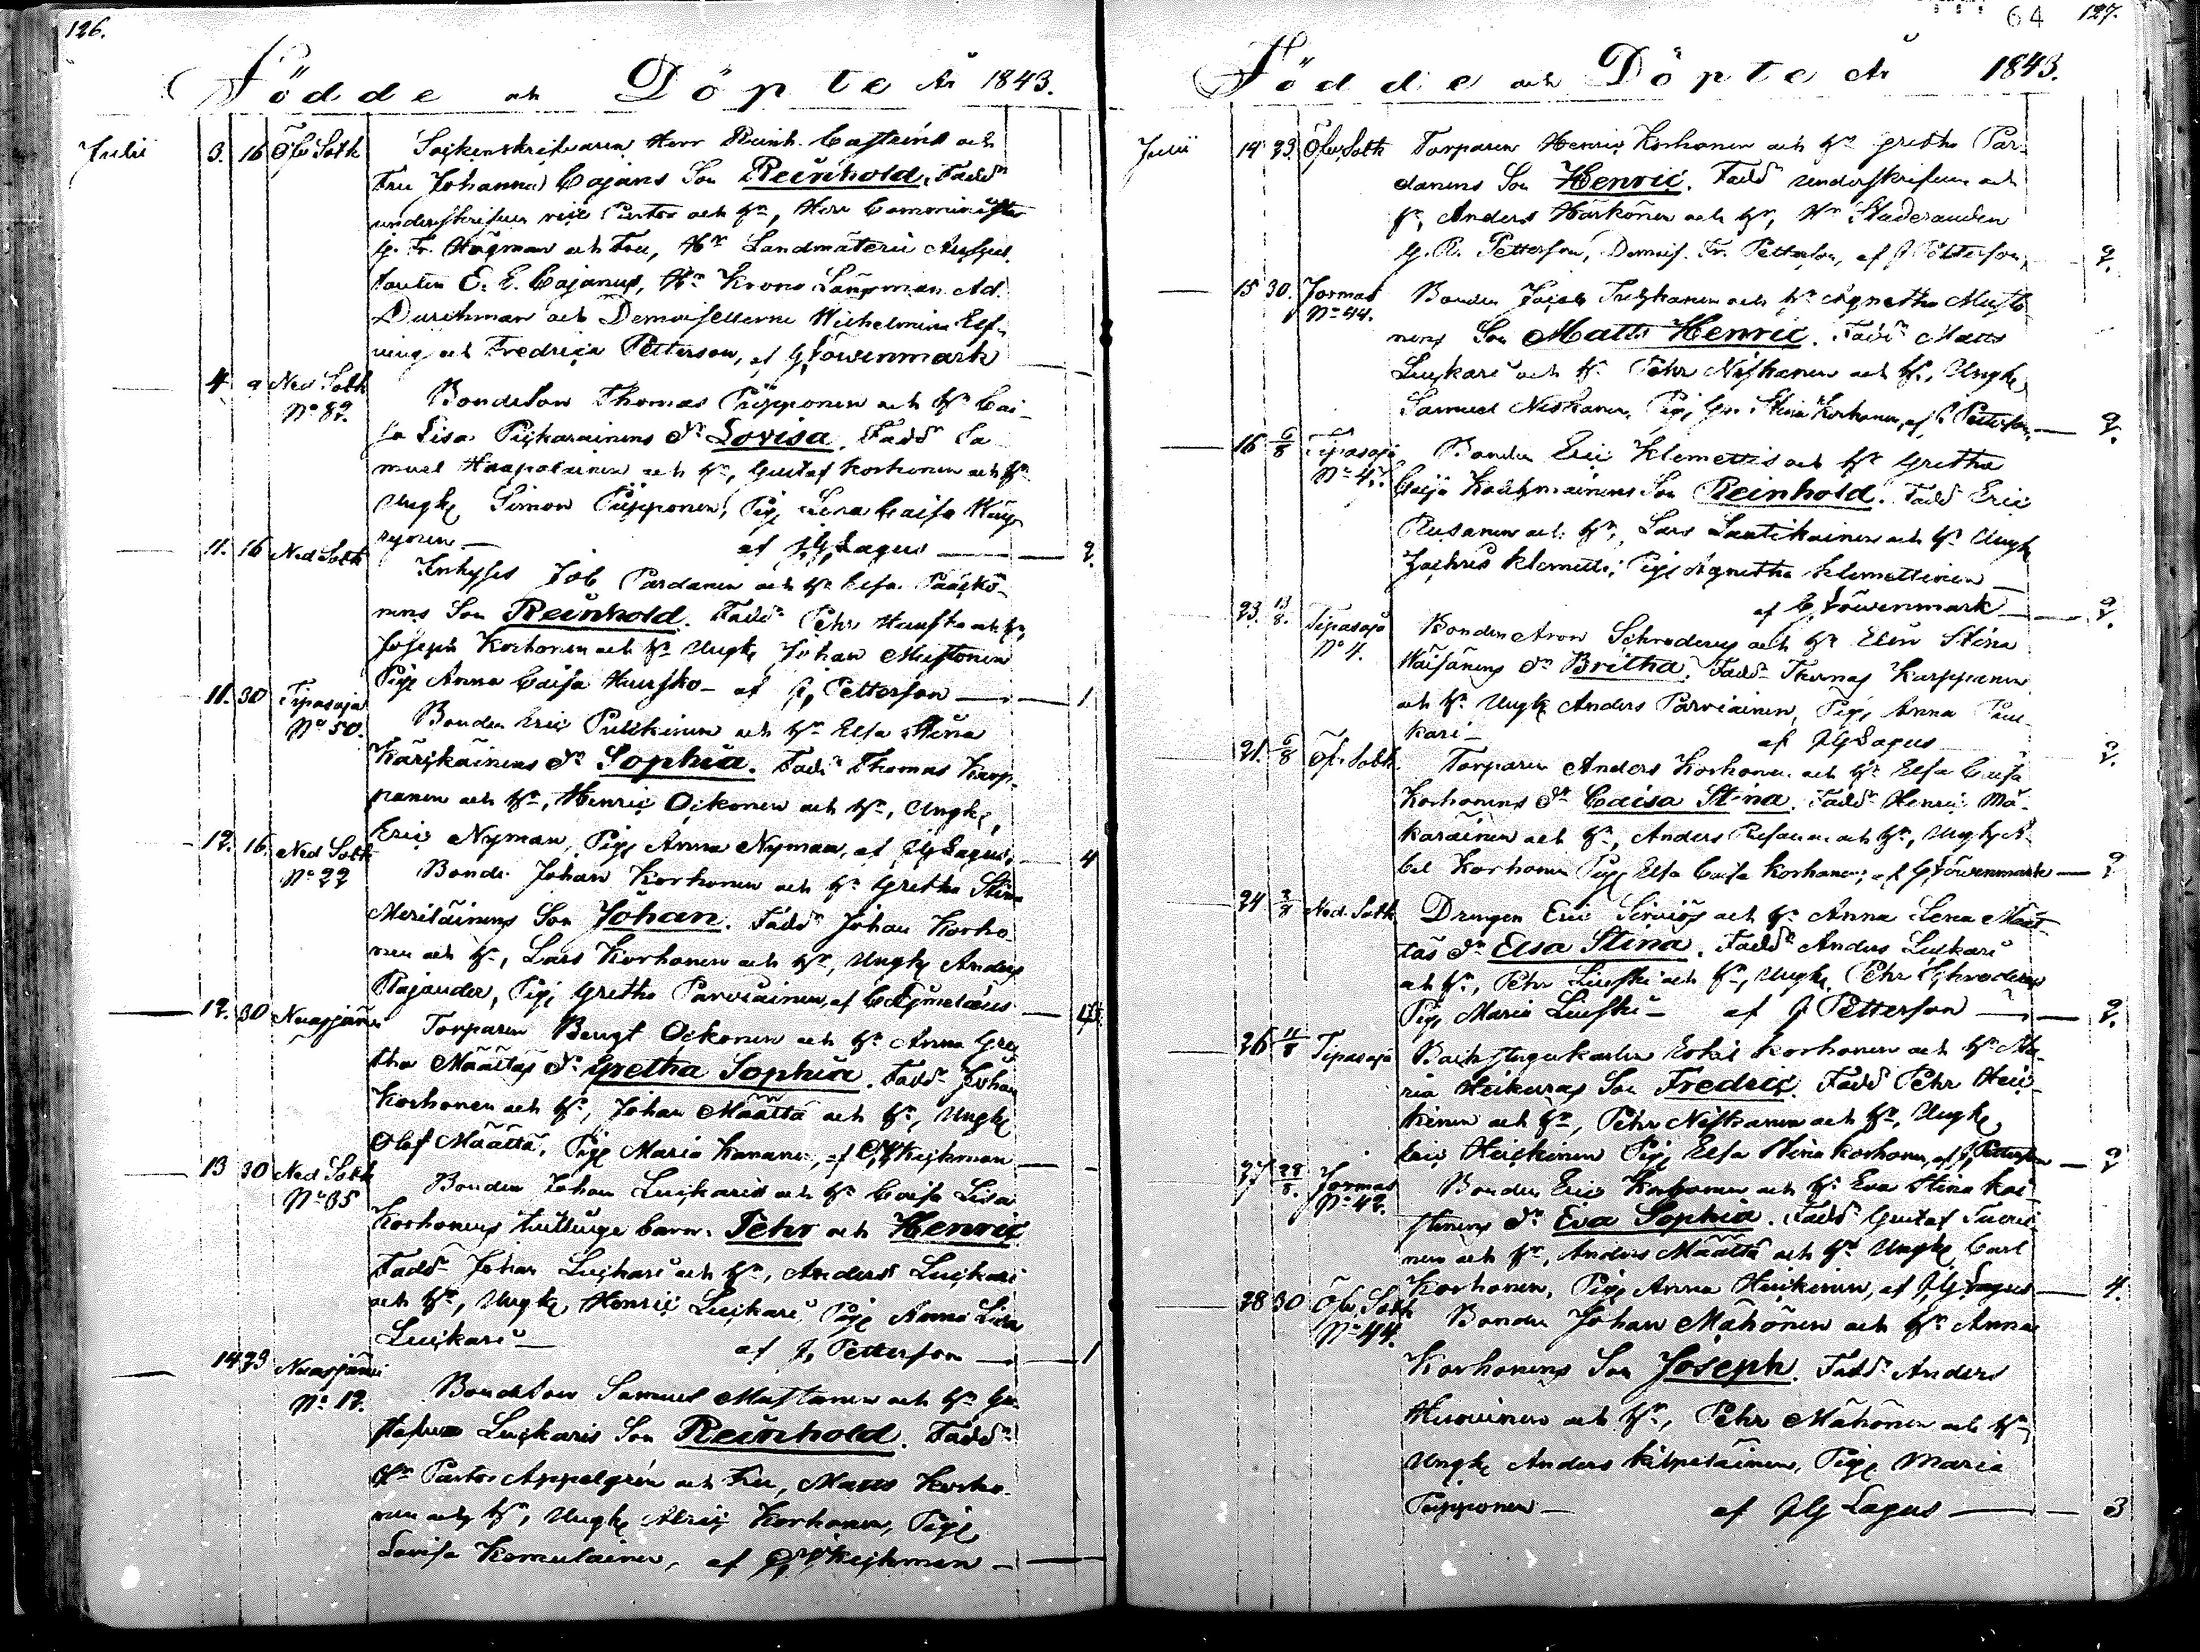 126.
Födde och Döpte År 1843.
Julii 3. 16 Öfv Sotk Sockenskrifvaren Herr Reinh. Castréns och
Fru Johanna Cajans Son Reinhold. Fadd
underskrifven vice Pastor och H, Herr Comminister
G. Fr. Högman och Fru, Hr Landmäteri Auscul-
tanten E. E. Cajanus, Hr Krono Länsman Ad.
Durchman och Demoisellerna Wilhelmina Elf-
ving och Fredrica Petterson, af G Löwenmark
4 9 Ned Sotk Bondeson Thomas Piipponen och H Cai-
No 82. sa Lisa Pickarainens Dr Lovisa. Fadd Sa-
muel Haapalainen och H, Gustaf Korhonen och H
Ungk Simon Piipponen, Pig Lena Caisa
af J. G. Lagus 2.
11. 16 Ned Sotk Inhyses Job Pardanen och H Elsa Pääskö-
nens Son Reinhold. Fadd Pehr Hauska och H,
Joseph Korhonen och H Ungk Johan Mustonen
Pig Anna Caisa Huusko af J. Petterson 1
11. 30 Tipasoja Bonden Eric Pulkinen och H Elsa Stina
No 50. Kärckäinens Dr Sophia. Fadd Thomas Karp-
panen och H, Henric Ockonen och H, Ungk,
Eric Nyman, Pig Anna Nyman, af JG Lagus. 4
12. 16. Ned Sotk Bond. Johan Korhonen och H Gretha Stina
No 22 Meriläinens Son Johan. Fadd Johan Korho-
nen och H, Lars Korhonen och H, Ungk Anders
Rajander, Pig Gretha Parviainen, af
12. 30 Nuasjärvi Torparen Bengt Ockonen och H Anna Gre-
tha Määttäs Dr Gretha Sophia. Fadd Johan
Korhonen och H, Johan Määttä och H, Ungk
Olof Määttä, Pig Maria Kananen, af
13 30 Ned Sotk Bonden Johan Luckaris och H Caisa Lisa
No 35 Korhonens tvillinge barn. Pehr och Henric
Fadd Johan Luckari och H, Anders Luckari
och H, Ungk Henric Luckari, Pig Anna Lisa
Luckari af J. Petterson 1
14 23 Nuasjärvi Bondeson Samuel Mustonen och H Gu-
No 12. stafva Luckaris Son Reinhold. Fadd
Hr Pastor Appelgrén och Fru, Matts Korho-
nen och H, Ungk Alric Korhonen, Pig
Lovisa Komulainen, af
64 127.
Födde och Döpte År 1843.
Julii 14 23. Öfv. Sotk Torparen Henric Korhonen och H Gretha Par-
danens Son Henric. Fadd underskrifven och
H, Anders Härkönen och H, Hr Studeranden
G. R. Petterson, Demois. Fr. Petterson, af J Petterson 2.
15 30. Jormas Bonden Jacob Tretjkanen och H Agnetha Musto-
No 44. nens Son Matts Henric. Fadd Matts
Luckari och H. Pehr Niskanen och H, Ungk
Samuel Niskanen, Pig Stina Korhonen, af J Petterson 2.
16 6/8 Tipasoja Bonden Eric Klemettis och H Gretha
No 47. Caisa Kautzmainens Son Reinhold. Fadd Eric
Rusanen och H, Lars Lautikainen och H Ungk
Zachris Klemetti, Pig Agnetha Klemettinen
af G Löwenmark 2.
23. 13/8. Tipasoja Bonden Aron Schroderus och H Elin Stina
No 4. Wäisänens Dr Britha. Fadd Thomas Karppanen
och H. Ungk Anders Parviainen, Pig, Anna Pau-
kari af JG Lagus 2.
21. 6/8 Öfv. Sotk Torparen Anders Korhonen och H Elsa Caisa
Korhonens Dr Caisa Stina. Fadd Henric Mä-
käräinen och H, Anders Rusanen och H, Ungk A-
bel Korhonen Pig Elsa Caisa Korhonen, af G Löwenmark 2
24 Ned. Sotk Drängen Eric Sirviös och H Anna Lena Määt-
täs Dr Elsa Stina. Fadd Anders Luckari
och H, Pehr Liuski och H, Ungk, Pehr Schroderus
Pig Maria Liuski af J Petterson 2.
26 11/8 Tipasoja Backstugukarlen Erkki Korhonen och H Ma-
ria Heikuras Son Fredric. Fadd Pehr Hei-
kinen och H, Pehr Niskanen och H, Ungk
Heickinen Pig Elsa Stina Korhonen, af J. Petterson 2
27 28/8. Jormas Bonden Eric Korhonen och H Eva Stina Kai-
No 42. stinens Dr Eva Sophia. Fadd Gustaf
nen och H, Anders Määttä och H Ungk Carl
Korhonen, Pig Anna Heikinen, af JG Lagus 4.
28 30 Öfv. Sotk Bonden Johan Mähönen och H Anna
No 44. Korhonens Son Joseph. Fadd Anders
Huovinen och H, Pehr Mähönen och H
Ungk Anders Kilpeläinen, Pig Maria
Piipponen af JG Lagus 3